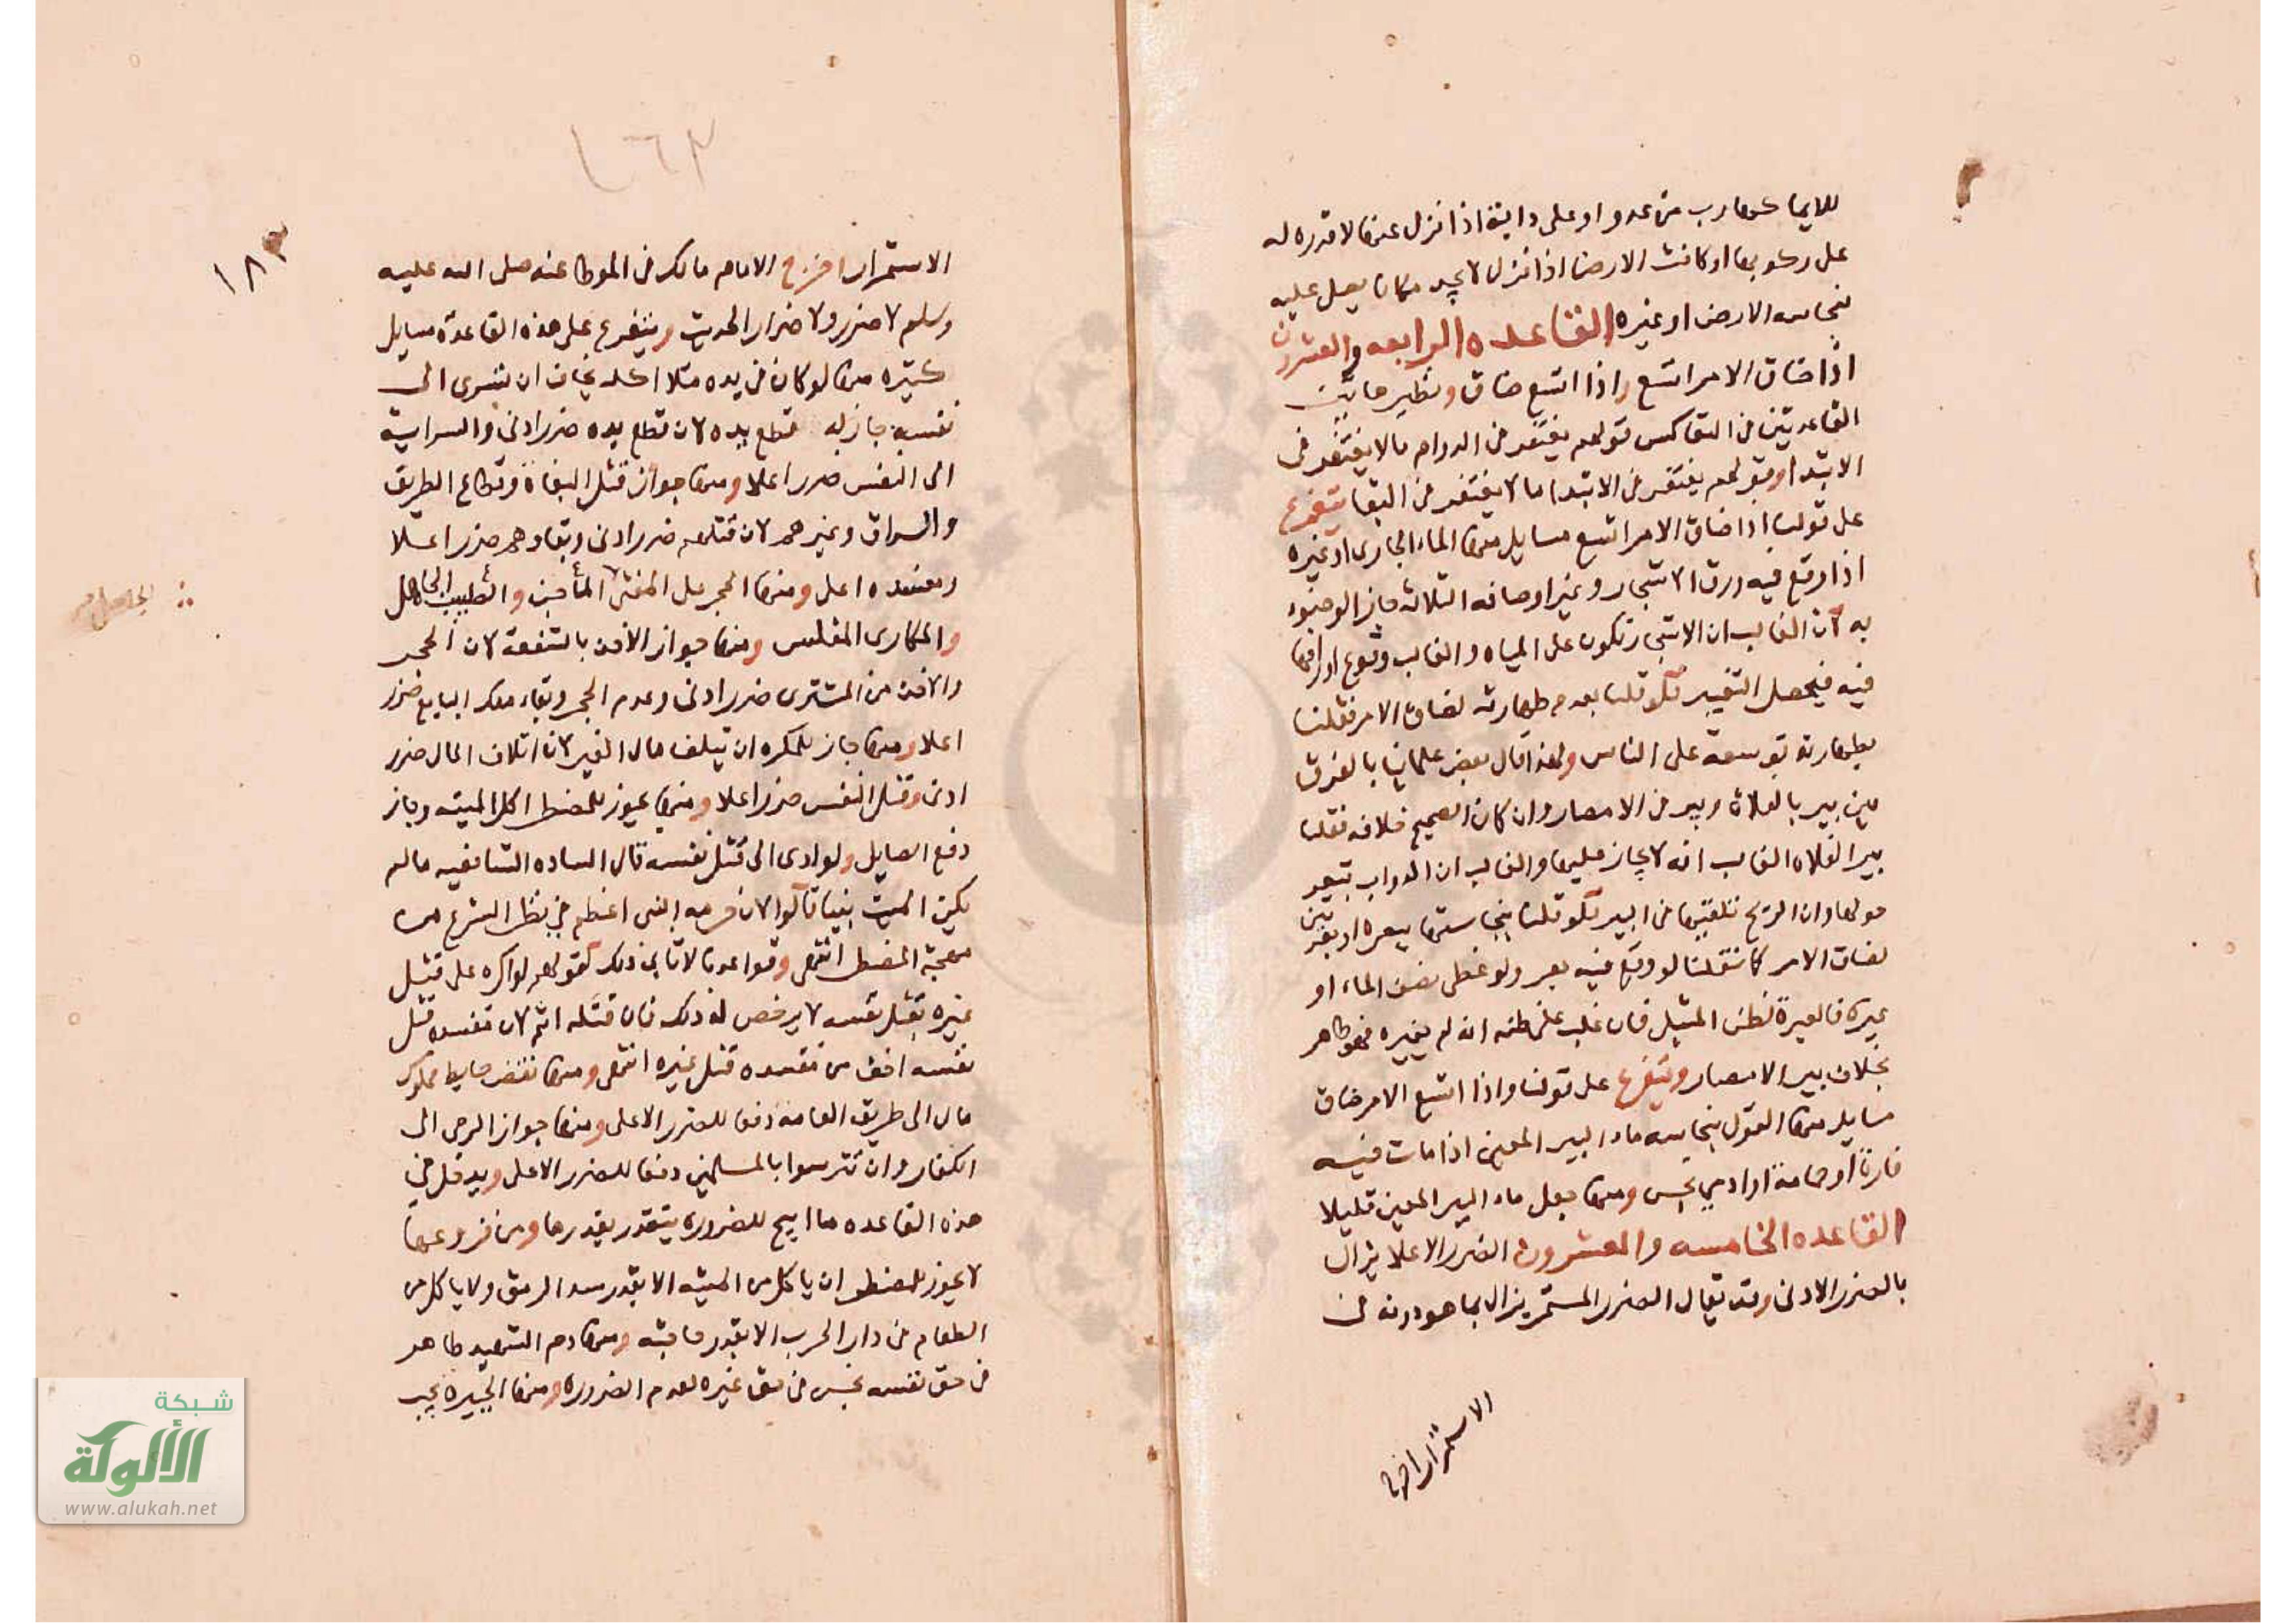 للايما كهارب من عدو او على دابة اذا نزل عنها لا قدره له
على ركوبها او كانت الارض اذا نزل لا يجد مكانا يصل عليه
بنجاسه الارض او غيره القاعده الرابعه والعشرون
اذا ضاق الامر اتسع واذا اتسع ضاق ونظير هاتين
القاعدتين في التعاكس قولهم يغتفر في الدوام مالا يغتفر في
الابتدا وقولهم يغتفر في الابتدا ما لا يغتفر في البقا يتفرع
على قولنا اذا ضاق الامر اتسع مسايل منها الماء الجارى او غيره
اذا وقع فيه ورق الاشجار وغير اوصافه الثلاثه جاز الوضوء
به لان الغالب ان الاشجار تكون على المياه والغالب وقوع اوراقها
فيه فيحصل التغيير فلو قلنا بعدم طهارته لضاق الامر فقلنا
بطهارته توسعة على الناس ولهذا قال بعض علمائنا بالفرق
بين بير بالفلاة وبير في الامصار وان كان الصحيح خلافه فقلنا
بير الفلاه الغالب انه لا حاجز عليها والغالب ان الدواب تبعر
حولها وان الريح تلقيها في البير فلو قلنا بنجاستها ببعره او بعرتين
لضاق الامر كما فقلنا لو وقع فيه بعر ولو غطى نصف الماء او
غيره فالعبرة لظن المبتلى فان غلب على ظنه انه لم يغيره فهو طاهر
بخلاف بير الامصار ويتفرع على قولنا واذا اتسع الامر ضاق
مسايل منها القول بنجاسه ماء البير المعين اذا مات فيه
فارة او حمامة او ادمي نجس ومنها جعل ماء البير المعين قليلا
القاعده الخامسه والعشرون الضرر الاعلا يزال
بالضرر الادنى وقد يقال الضرر المستمر يزال بما هو دونه في
الاستمرار اخرج
١٨٣
الاستمرار اخرج الامام مالك في الموطا عنه صلى الله عليه
وسلم لا ضرر ولا ضرار الحديث ويتفرع على هذه القاعدة مسايل
كثيره منها لو كان في يده مثلا اكله يخاف ان تسرى الى
نفسه جاز له قطع يده لان قطع يده ضرر ادنى والسراية
الى النفس ضرر اعلا ومنها جواز قتل البغاة وقطاع الطريق
والسراق وغيرهم لان قتلهم ضرر ادنى وبقاوهم ضرر اعلا
ومفسده اعلى ومنها الحجر على المفتى الماجن والطبيب الجاهل
والمكارى المفلس ومنها جواز الاخذ بالشفعة لان الحجر
والاخذ من المشترى ضرر ادنى وعدم الحجر وبقاء ملك البايع ضرر
اعلا ومنها جاز للمكره ان يتلف مال الغير لان اتلاف المال ضرر
ادنى وقتل النفس ضرر اعلا ومنها يجوز للمضطر اكل الميته وجاز
دفع الصايل ولو ادى الى قتل نفسه قال الساده الشافعيه مالم
يكن الميت نبيا قالوا لان حرمه النبى اعظم في نظر الشرع من
مهجة المضطر انتهى وقواعدنا لا تابى ذلك كقولهم لو اكره على قتل
غيره بقتل نفسه لا يرخص له ذلك فان قتله اثم لان مفسده قتل
نفسه اخف من مفسده قتل غيره انتهى ومنها نقض حايط مملوك
مال الى طريق العامه دفعا للضرر الاعلى ومنها جواز الرمى الى
الكفار وان تترسوا بالمسلمين دفعا للضرر الاعلى ويدخل في
هذه القاعده ما ابيح للضروره يتقدر بقدرها ومن فروعها
لا يجوز للمضطر ان ياكل من الميته الا بقدر سد الرمق ولا ياكل من
الطعام في دار الحرب الا بقدر حاجته ومنها دم الشهيد طاهر
في حق نفسه نجس في حق غيره لعدم الضروره ومنها الجبيره يجب
شبكة
الألوكة
www.alukah.net